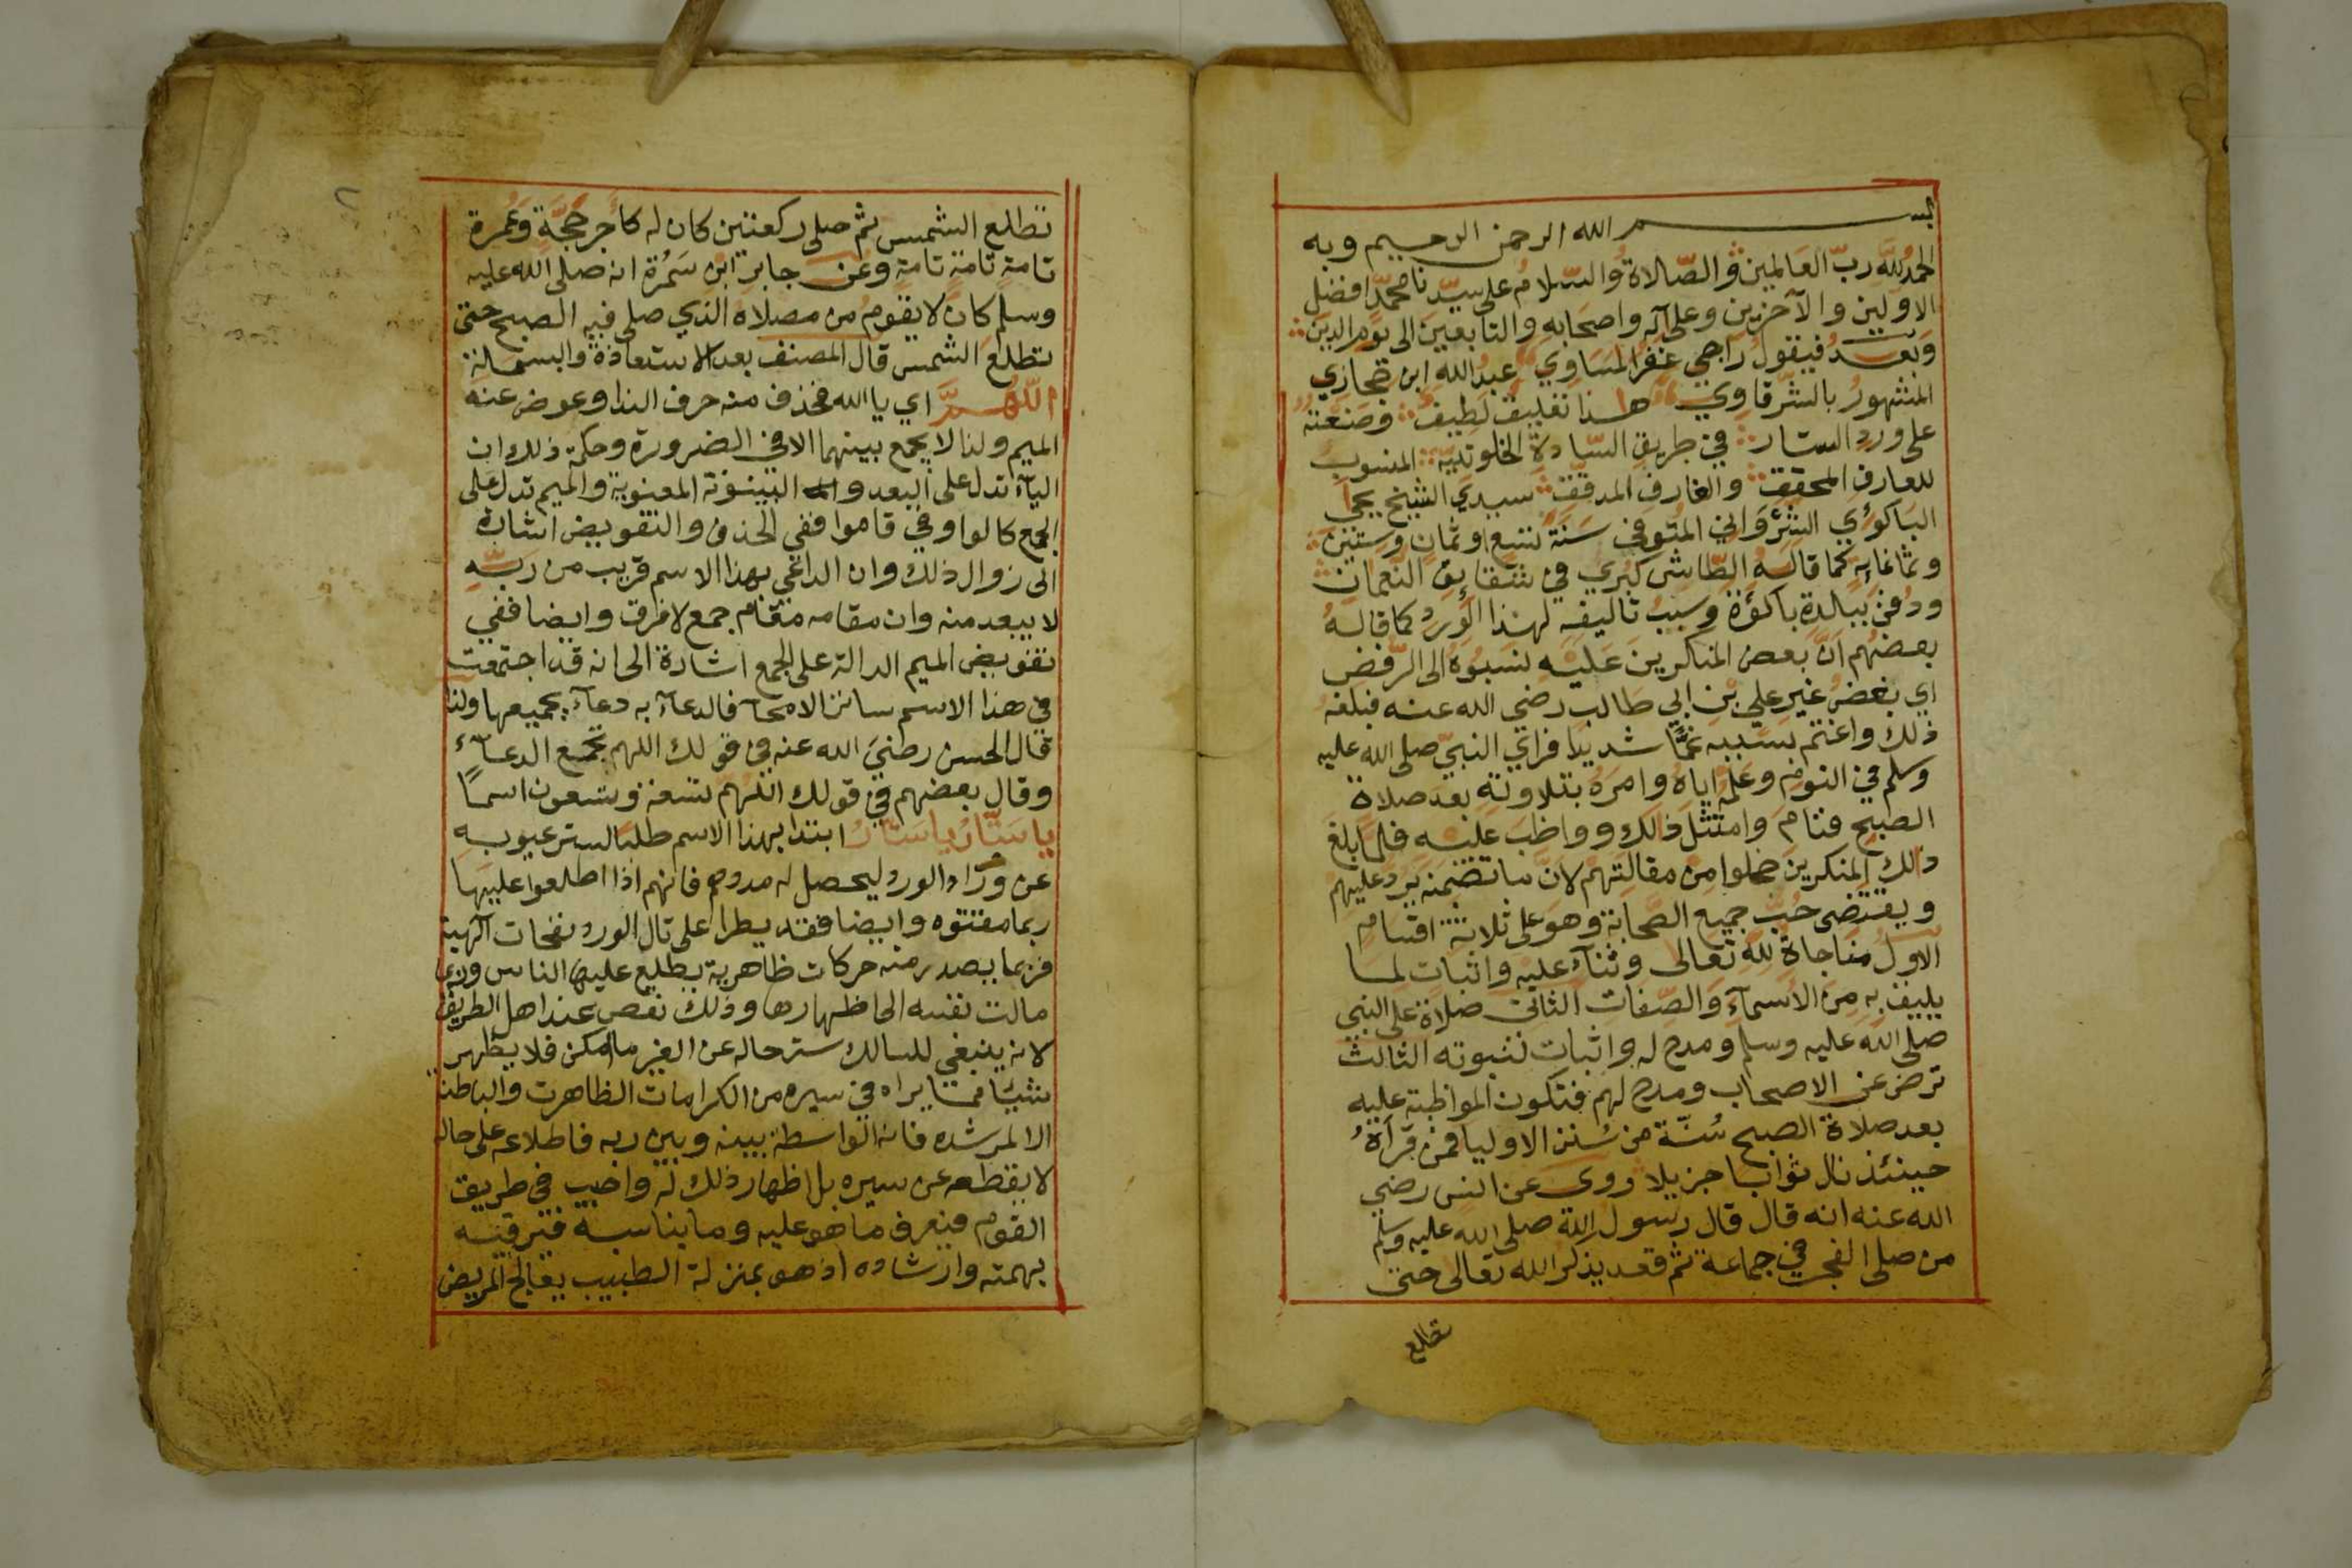 بسم الله الرحمن الرحيم وبه
الحمد لله ربّ العالمين والصّلاة والسّلام على سيّدنا محمّد افضل
الاولين والآخرين وعلى آله واصحابه والتابعين الى يوم الدين
وبعد فيقول راجي غفر المساوي عبد الله ابن حجازي
المشهور بالشّرقاوي هذا تعليق لطيف وضعته
على ورد الستار في طريق السّادة الخلوتية المنسوب
للعارف المحقق والغارف المدقق سيدي الشيخ يحيى
الباكوري الشرواني المتوفى سنة تسع او ثمان وستين
وثمانمأية كما قاله الطّاش كبري في شقايق النعمان
ودفن ببلدة باكؤة وسبب تاليفه لهذا الورد كما قاله
بعضهم انّ بعض المنكرين عليه نسبوه الى الرّفض
اي بغض غير علي بن ابي طالب رضي الله عنه فبلغه
ذلك واغتم بسببه غمّا شديدا فراي النبيّ صلى الله عليه
وسلم في النوم وعلّمه اياه وامره بتلاوته بعد صلاة
الصبح فقام وامتثل ذلك وواظب عليه فلما بلغ
ذلك المنكرين خجلوا من مقالتهم لانّ ما تضمنه يرد عليهم
ويقتضى حبّ جميع الصّحابة وهو على ثلاثة اقسام
الاول مناجاة لله تعالى وثناء عليه واثبات لما
يليق به من الاسمآء والصّفات الثانى صلاة على النبي
صلى الله عليه وسلم ومدح له واثبات لنبوته الثالث
ترض عن الاصحاب ومدح لهم فتكون المواظبة عليه
بعد صلاة الصبح سُنّة من سُنن الاوليا فمن قرأهُ
حينئذ نال ثوابا جزيلا روى عن انس رضي
الله عنه انه قال قال رسول الله صلى الله عليه وسلم
من صلى الفجر في جماعة ثم قعد يذكر الله تعالى حتى
تطلع
٢
تطلع الشمس ثم صلى ركعتين كان له كأجر حجّة وعُمرة
تامة تامة تامة وعن جابر ابن سَمُرة انه صلى الله عليه
وسلم كان لا يقوم من مصلاه الذي صلى فيه الصبح حتى
تطلع الشمس قال المصنف بعد الاستعاذة والبسملة
اللّهمّ اي يا الله فحذف منه حرف الندا وعوض عنه
الميم ولذا لا يجمع بينهما الا في الضرورة وحكمة ذلك ان
اليآء تدل على البعد والبينونة المعنوية والميم تدل على
الجمع كالواو في قاموا ففي الحذف والتعويض اشارة
الى زوال ذلك وان الداعي بهذا الاسم قريب من ربّه
لا يبعد منه وان مقامه مقام جمع لا فرق وايضا ففي
تعويض الميم الدالة على الجمع اشارة الى انه قد اجتمعت
في هذا الاسم سائر الاسمآ فالدعآء به دعآء بجميعها ولذا
قال الحسن رضيَ الله عنه في قولك اللهم تجمع الدعآء
وقال بعضهم في قولك اللهم تسعة وتسعون اسمًا
يا ستّار يا ستّار ابتدا بهذا الاسم طلبا لستر عيوبه
عن ورّاد الورد ليحصل له مددهم فانهم اذا اطلعوا عليها
ربما مقتوه وايضا فقد يطرا على تال الورد نفحات آلهية
فربما يصدر منه حركات ظاهرية يطلع عليها الناس وربما
مالت نفسه الى اظهارها وذلك نقص عند اهل الطريق
لانه ينبغي للسالك ستر حاله عن الغير ما امكن فلا يظهر
شيئا مما يراه في سيره من الكرامات الظاهرت والباطنة
الا لمرشده فانه الواسطة بينه وبين ربه فاطلاعه على حاله
لا يقطعه عن سيره بل اظهار ذلك له واجب في طريق
القوم فيعرف ما هو عليه وما يناسبه فيرقيه
بهمته وارشاده اذ هو بمنزلة الطبيب يعالج المريض